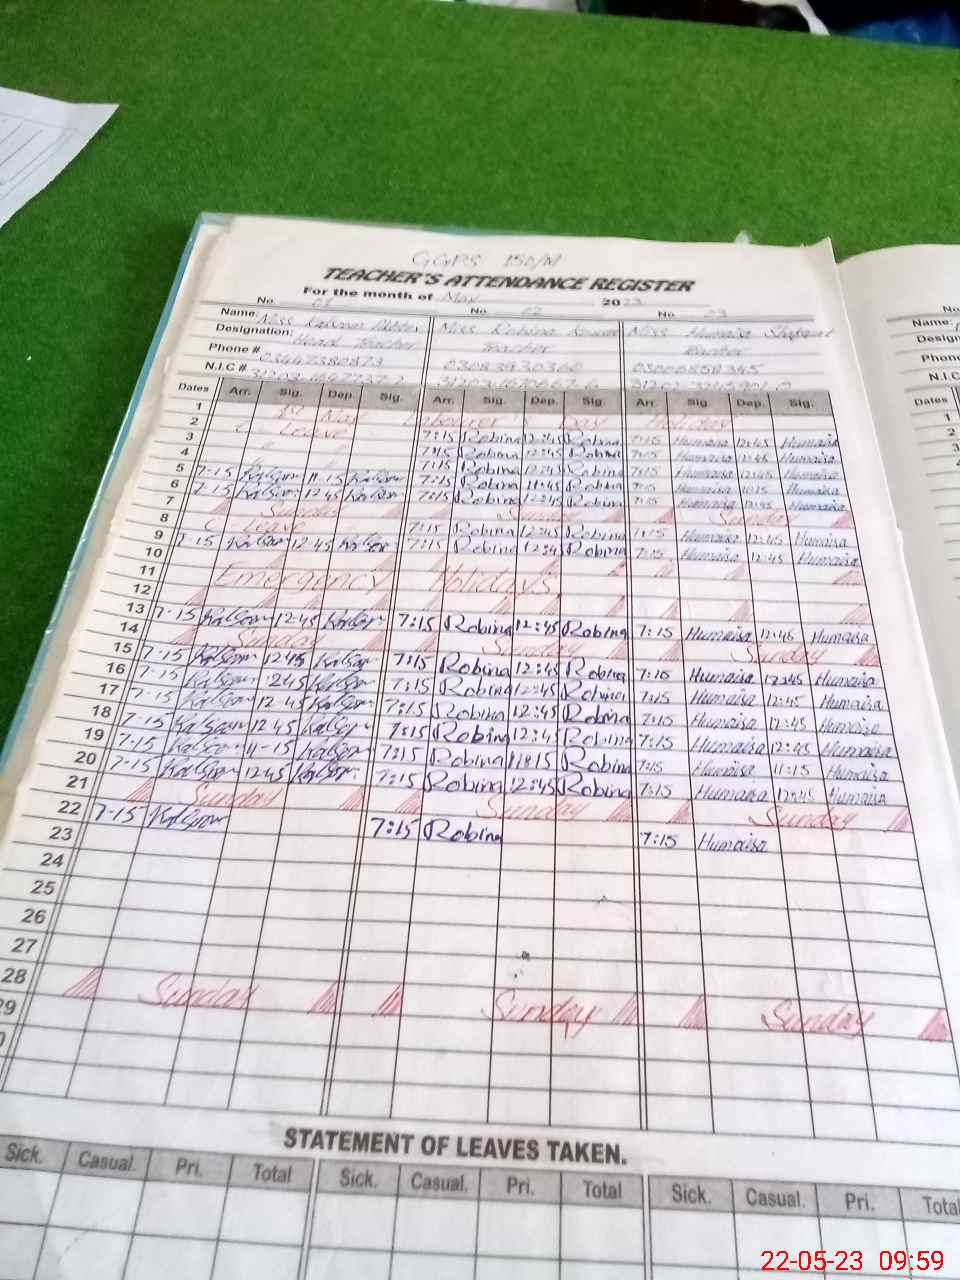 GGPS 150/M
TEACHER'S ATTENDANCE REGISTER
For the month of May 2023
No. 01 No. 02 No. 03
Name: Miss Kalsoom Miss Robina Kousar Miss Humaisa Name:
Designation: Head Teacher Teacher Teacher
Phone # 03447380873 03083930360 03006858345 Phone
N.I.C # N.I.C
Dates Arr. Sig. Dep. Sig. Arr. Sig. Dep. Sig. Arr. Sig. Dep. Sig. Dates
1 1st May Labour Day Holiday 1
2 C Leave 7:15 Robina 12:45 Robina 7:15 Humaisa 12:45 Humaisa 2
3 " " 7:15 Robina 12:45 Robina 7:15 Humaisa 12:45 Humaisa 3
4 " " 7:15 Robina 12:45 Robina 7:15 Humaisa 12:45 Humaisa
5 7-15 Kalsoom 11-15 Kalsoom 7:15 Robina 11:15 Robina 7:15 Humaisa 11:15 Humaisa
6 7-15 Kalsoom 12 45 Kalsoom 7:15 Robina 12:45 Robina 7:15 Humaisa 12:45 Humaisa
7 Sunday Sunday Sunday
8 C Leave 7:15 Robina 12:45 Robina 7:15 Humaisa 12:45 Humaisa
9 7-15 Kalsoom 12 45 Kalsoom 7:15 Robina 12:45 Robina 7:15 Humaisa 12:45 Humaisa
10
11 Emergency Holidays
12
13 7-15 Kalsoom 12:45 Kalsoom 7:15 Robina 12:45 Robina 7:15 Humaisa 12:45 Humaisa
14 Sunday Sunday
15 7-15 Kalsoom 12 45 Kalsoom 7:15 Robina 12:45 Robina 7:15 Humaisa 12:45 Humaisa
16 7-15 Kalsoom 12 45 Kalsoom 7:15 Robina 12:45 Robina 7:15 Humaisa 12:45 Humaisa
17 7-15 Kalsoom 12 45 Kalsoom 7:15 Robina 12:45 Robina 7:15 Humaisa 12:45 Humaisa
18 7-15 Kalsoom 12 45 Kalsoom 7:15 Robina 12:45 Robina 7:15 Humaisa 12:45 Humaisa
19 7-15 Kalsoom 11-15 Kalsoom 7:15 Robina 11:15 Robina 7:15 Humaisa 11:15 Humaisa
20 7-15 Kalsoom 12 45 Kalsoom 7:15 Robina 12:45 Robina 7:15 Humaisa 12:45 Humaisa
21 Sunday Sunday Sunday
22 7-15 Kalsoom 7:15 Robina 7:15 Humaisa
23
24
25
26
27
28 Sunday Sunday Sunday
29
STATEMENT OF LEAVES TAKEN.
Sick. Casual. Pri. Total Sick. Casual. Pri. Total Sick. Casual. Pri. Total
22-05-23 09:59